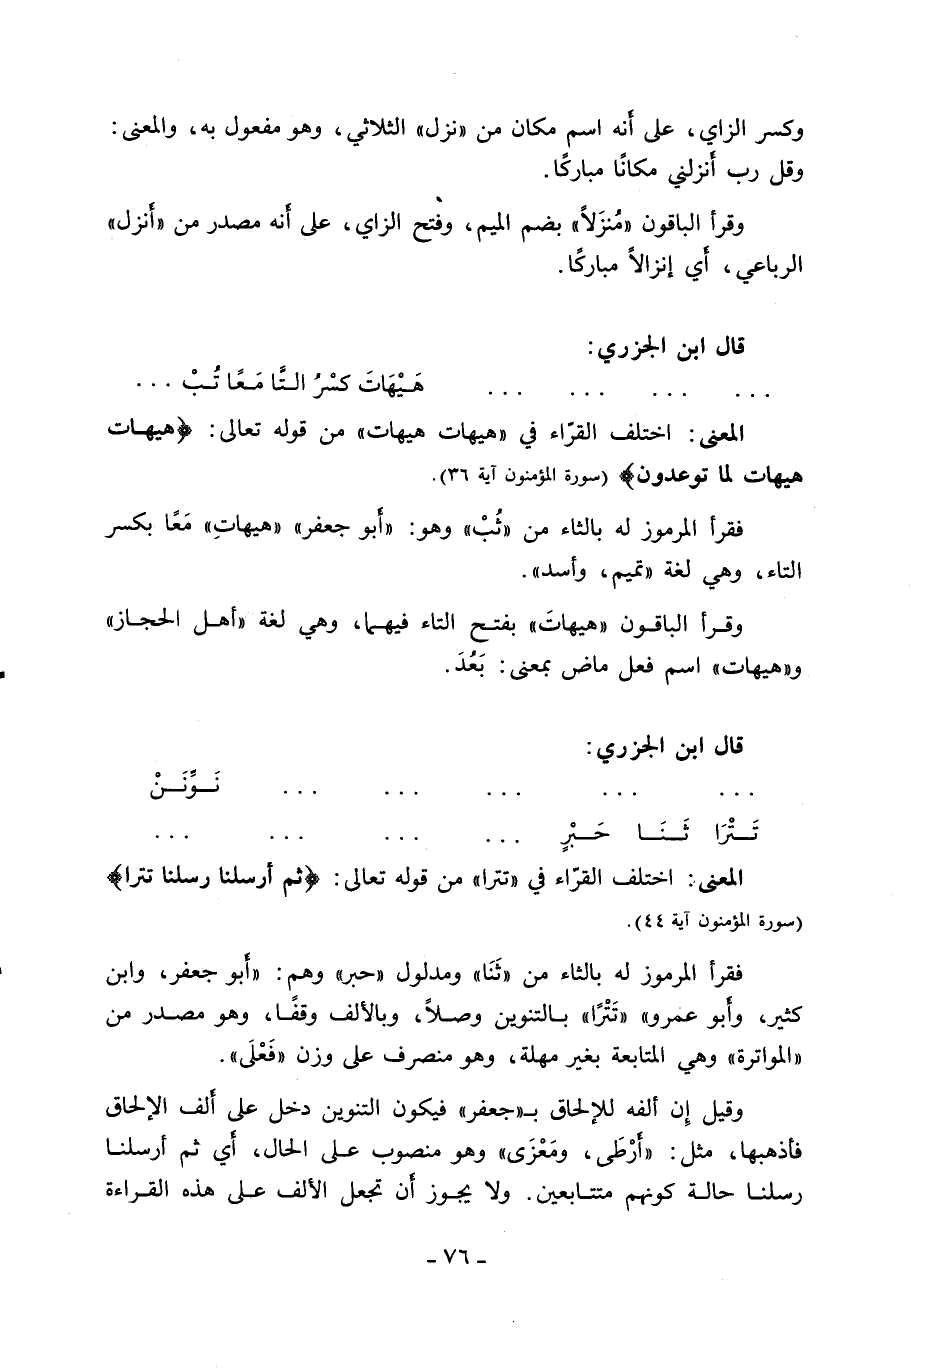 وكسر الزاي، على أنه اسم مكان من «نزل» الثلاثي، وهو مفعول به، والمعنى:
وقل رب أنزلني مكانًا مباركًا.
وقرأ الباقون «مُنزَلاً» بضم الميم، وفتح الزاي، على أنه مصدر من «أنزل»
الرباعي، أي إنزالاً مباركًا.
قال ابن الجزري:
... ... ... ... هَيْهَاتَ كَسْرُ التَّا مَعًا ثُبْ ...
المعنى: اختلف القرّاء في «هيهات هيهات» من قوله تعالى: ﴿هيهات
هيهات لما توعدون﴾ (سورة المؤمنون آية ٣٦).
فقرأ المرموز له بالثاء من «ثُبْ» وهو: «أبو جعفر» «هيهاتِ» مَعًا بكسر
التاء، وهي لغة «تميم، وأسد».
وقرأ الباقون «هيهاتَ» بفتح التاء فيهما، وهي لغة «أهل الحجاز»
و«هيهات» اسم فعل ماض بمعنى: بَعُدَ.
قال ابن الجزري:
... ... ... ... ... نَوِّنَنْ
تَتْرَا ثَنَا حَبْرٍ ... ... ... ...
المعنى: اختلف القرّاء في «تترا» من قوله تعالى: ﴿ثم أرسلنا رسلنا تترا﴾
(سورة المؤمنون آية ٤٤).
فقرأ المرموز له بالثاء من «ثَنَا» ومدلول «حبر» وهم: «أبو جعفر، وابن
كثير، وأبو عمرو» «تَتْرًا» بالتنوين وصلاً، وبالألف وقفًا، وهو مصدر من
«المواترة» وهي المتابعة بغير مهلة، وهو منصرف على وزن «فَعْلَى».
وقيل إن ألفه للإلحاق بـ«جعفر» فيكون التنوين دخل على ألف الإلحاق
فأذهبها، مثل: «أَرْطَى، ومَعْزَى» وهو منصوب على الحال، أي ثم أرسلنا
رسلنا حالة كونهم متتابعين. ولا يجوز أن تجعل الألف على هذه القراءة
- ٧٦ -